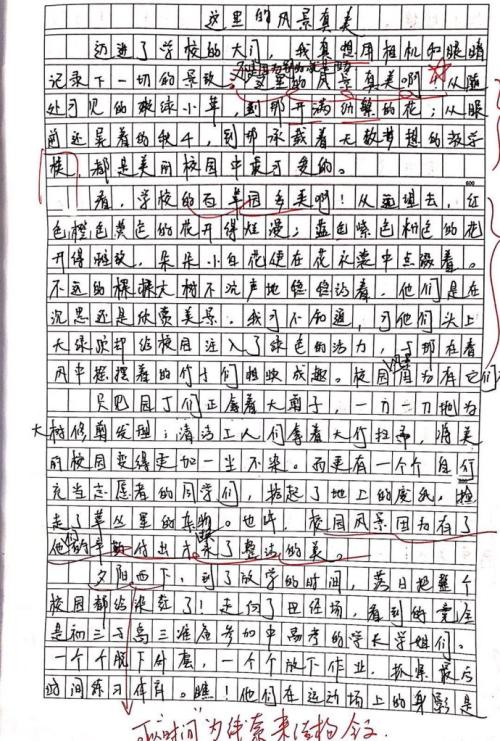 这里的风景真美
迈进了学校的大门，我真想用相机和眼睛
记录下一切的景致。这里的风景真美啊！从随
处可见的嫩绿小草，到那开满的花；从眼
前还晃着的秋千，到那承载着无数梦想的教学
楼，都是美丽校园中最可爱的。
看，学校的百草园多美啊！从西望去，红
色橙色黄色的花开得烂漫；蓝色紫色粉色的花
开得雅致，朵朵小白花便在花衣裳中点缀着。
不远的棵棵大树不沉声地矗着，他们是在
沉思还是欣赏美景，我可不知道，可他们头上
大绿顶却给校园注入了绿色的活力，与那在春
风中摇摆着的竹子们相映成趣。校园风景因为有它们
只见园丁们正拿着大剪子，一刀一刀地为
大树修剪发型；清洁工人们拿着大竹扫帚，将美
丽校园变得更加一尘不染。而更有一个个自行
充当志愿者的同学们，拾起了地上的废纸，捡
走了草丛里的杂物。也许，校园风景因为有了
他们的辛勤付出才有了整洁的美。
夕阳西下，到了放学的时间，落日把整个
校园都给染红了！走向了田径场，看到的竟全
是初三与高三准备参加中高考的学长学姐们。
一个个脱下外套，一个个放下作业，抓紧最后
时间练习体育。瞧！他们在运动场上的身影是
可以"时间"为线索来结构全文